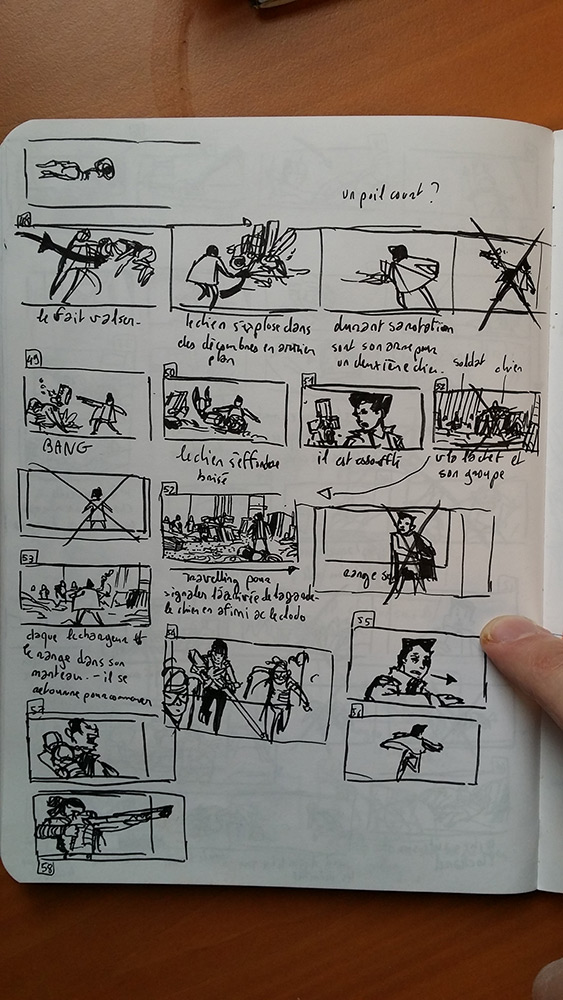 un poil court ?
48
le fait valser.
le chien s'explose dans
des décombres en arrière
plan
durant sa rotation
sort son arme pour
un deuxième chien.
soldat chien
49
50
51
52
BANG
le chien s'effondre
brisé
il est essoufflé
et
son groupe
52
travelling pour
signaler l'arrivée de la garde
le chien en a fini
53
range
claque le chargeur et
le range dans son
manteau. - il se
retourne pour
54
55
57
56
58